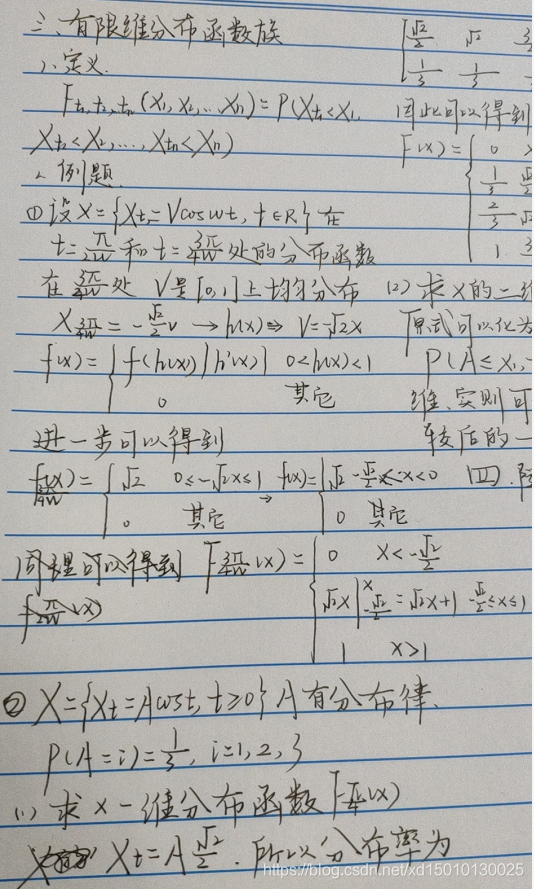 三、有限维分布函数族
1、定义.
Ft₁,t₂,tn(x₁,x₂,...xn)=P(Xt₁<x₁,
Xt₂<x₂,...,Xtn<xn)
2、例题
① 设X={Xt=Vcoswt, t∈R}在
t=π/2w和t=3π/4w处的分布函数
在3π/4w处 V是[0,1]上均匀分布
X3π/4w=-√2/2v→h(x)⇒V=-√2x
f(x)={f(h(x))|h'(x)| 0<h(x)<1
0 其它
进一步可以得到
f3π/4w(x)={√2 0≤-√2x≤1 → f(x)={√2 -√2/2<x<0
0 其它 0 其它
同理可以得到 F3π/4w(x)={0 x<-√2/2
√2x|x-√2/2=√2x+1 -√2/2≤x≤1
1 x>1
② X={Xt=Acost, t≥0} A有分布律.
P(A=i)=1/3, i=1,2,3
(1) 求x一维分布函数Fπ/4(x)
Xt=A√2/2. 所以分布率为
√2/2 √2 3
1/3 1/3
因此可以得到
F(x)={0
1/3
2/3
1
(2) 求X的二维
原式可以化为
P(A≤x₁,
维、实则可
较后的一
四.
https://blog.csdn.net/xd15010130025